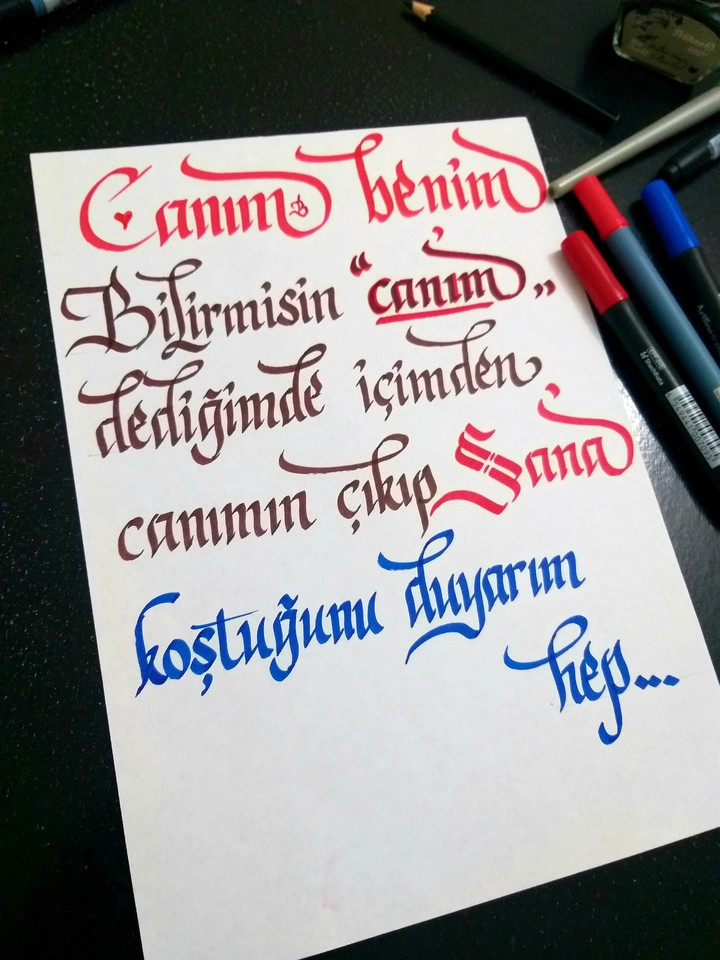 Canım benim
Bilirmisin "canım„
dediğimde içimden
canımın çıkıp Sana
koştuğunu duyarım
hep...